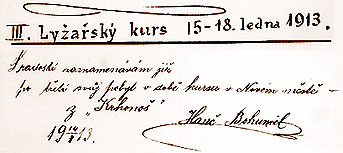 III. Lyžařský kurs 15-18. ledna 1913.
S radostí zaznamenávám již
po třetí svůj pobyt v době kursu v Novém městě –
z „Krkonoš“
19 13. Hanč Bohumil